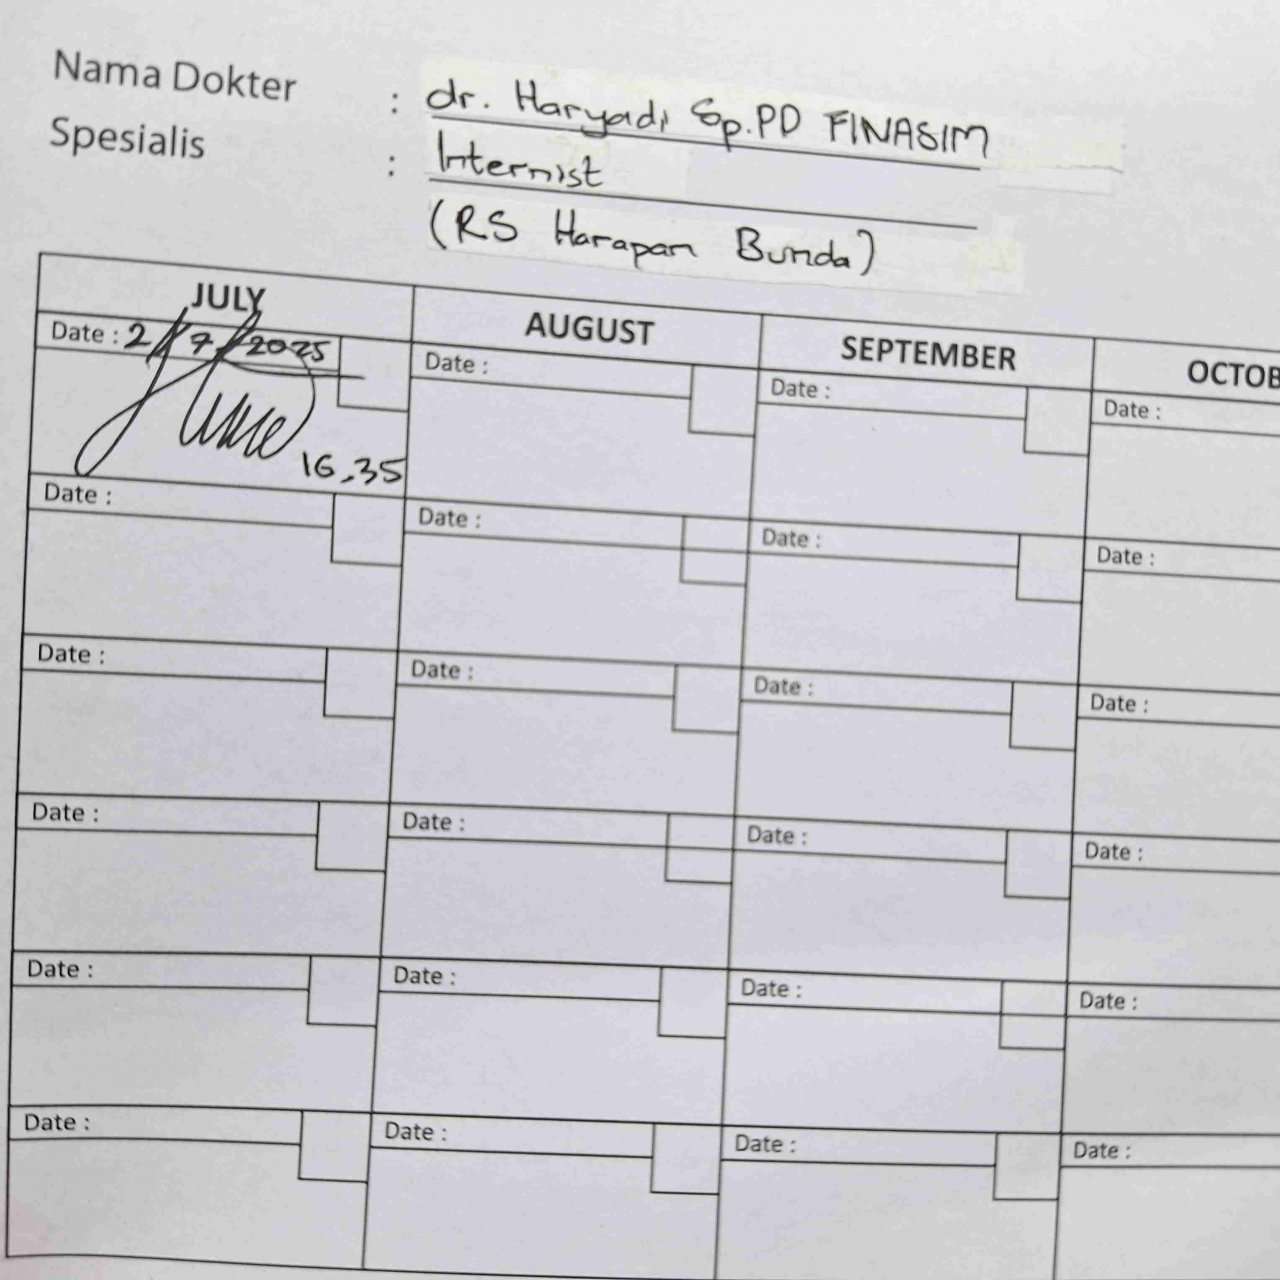 Nama Dokter : dr. Haryadi Sp.PD FINASIM
Spesialis : Internist
(RS Harapan Bunda)
JULY AUGUST SEPTEMBER OCTOB
Date : 2/7/2025 Date : Date : Date :
16.35
Date : Date : Date : Date :
Date : Date : Date : Date :
Date : Date : Date : Date :
Date : Date : Date : Date :
Date : Date : Date : Date :